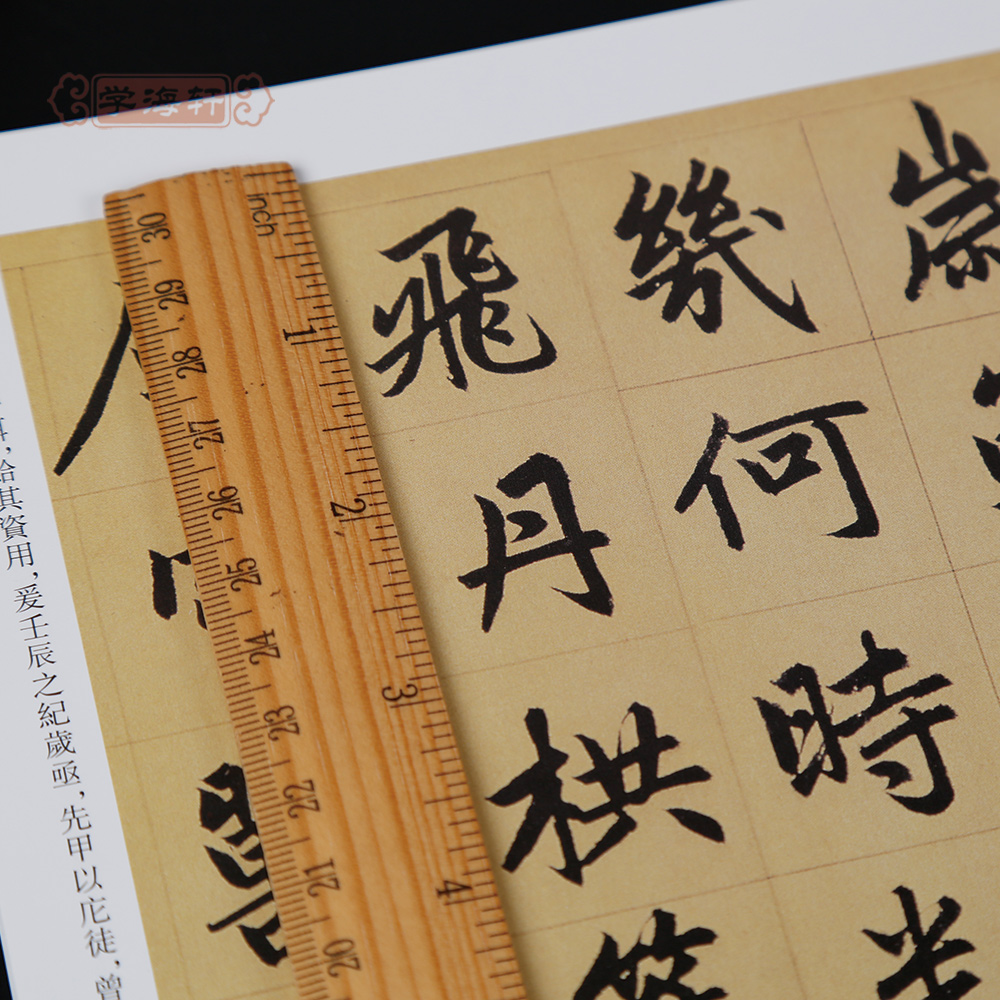 学海轩
幾何時
飛丹栱
inch
1
2
3
4
30
29
28
27
26
25
24
23
22
21
20
給其資用，爰壬辰之紀歲亟，先甲以庀徒，曾